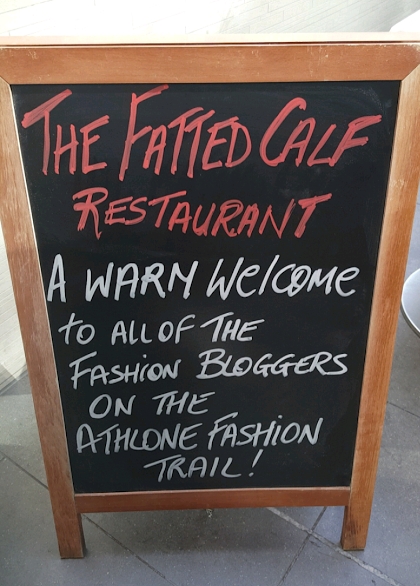 THE FATTED CALF
RESTAURANT
A WARM WELCOME
to ALL OF THE
FASHION BLOGGERS
ON THE
ATHLONE FASHION
TRAIL!